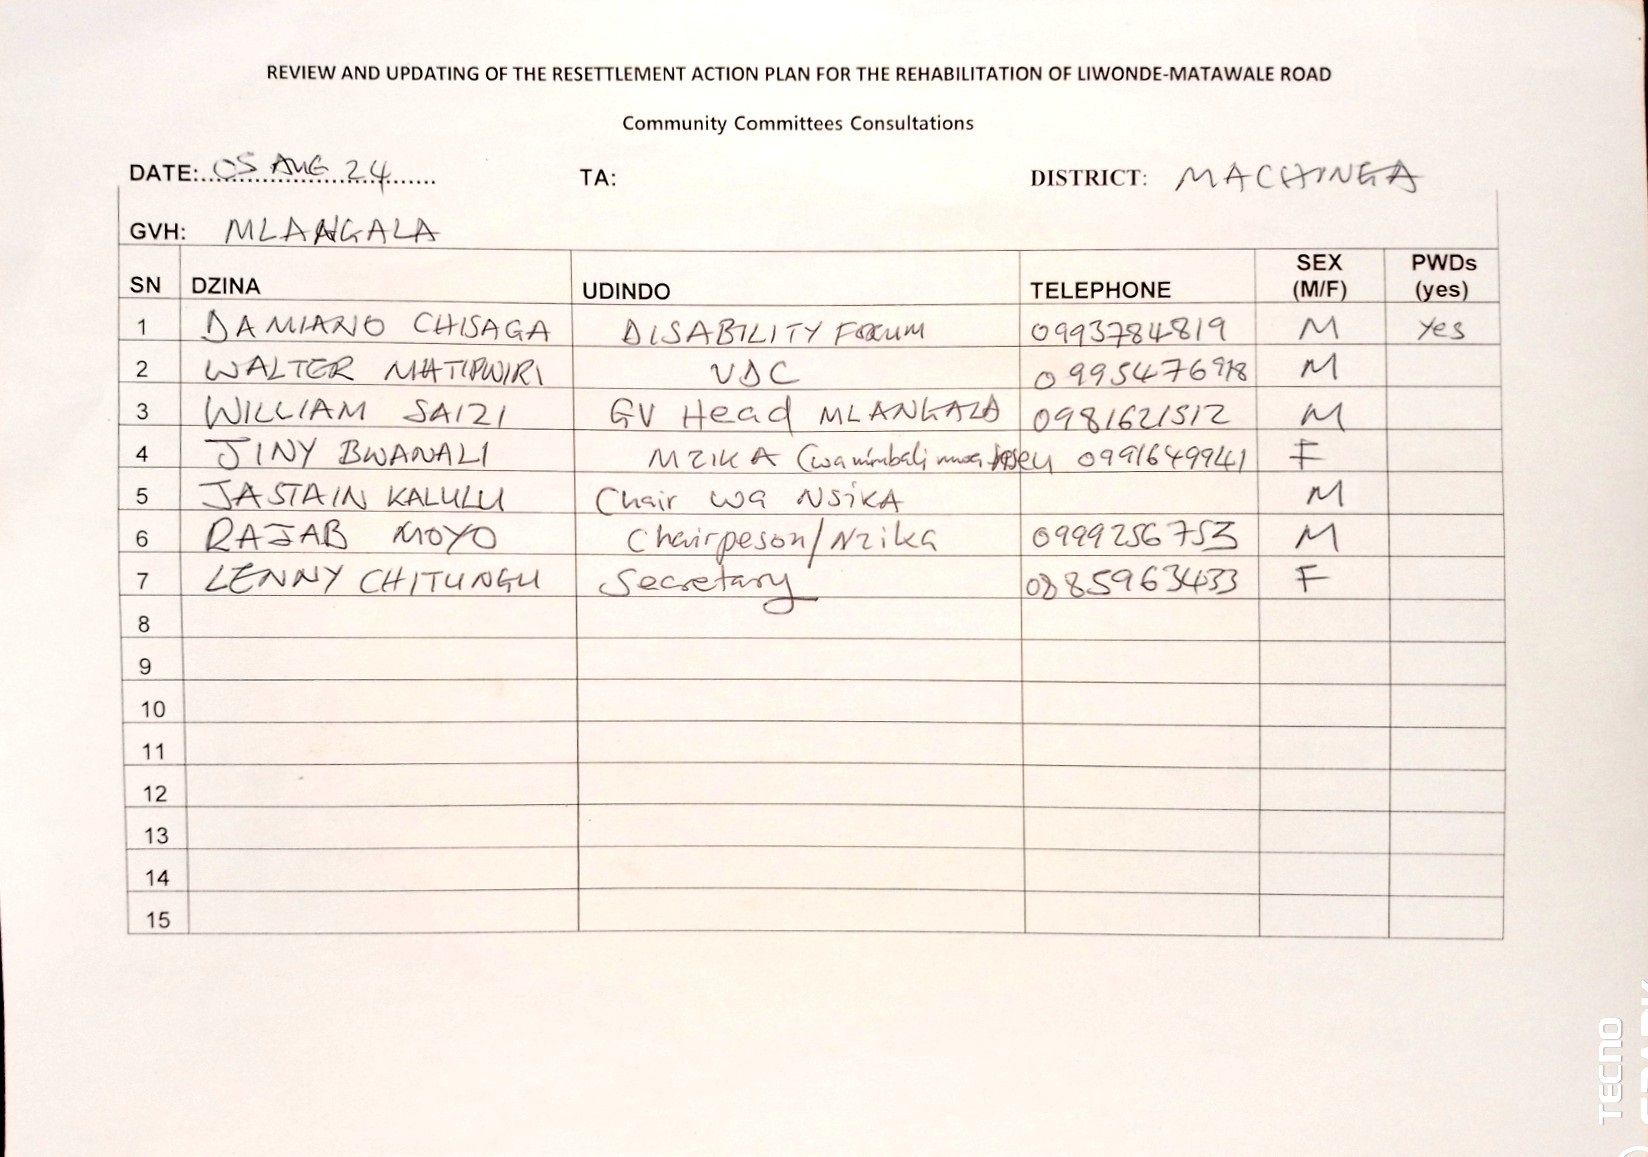 REVIEW AND UPDATING OF THE RESETTLEMENT ACTION PLAN FOR THE REHABILITATION OF LIWONDE-MATAWALE ROAD
Community Committees Consultations
DATE: 05 AUG 24 TA: DISTRICT: MACHINGA
GVH: MLANGALA
SN DZINA UDINDO TELEPHONE SEX (M/F) PWDs (yes)
1 DAMIANO CHISAGA DISABILITY Forum 0993784819 M Yes
2 WALTER MATIPWIRI VDC M
3 WILLIAM SAIZI GV Head MLANGALA 0981621512 M
4 JINY BWANALI MZIKA 0991649941 F
5 JASTAIN KALULU Chair wa NSiKA M
6 RAJAB MOYO Chairpeson/Nzika 0999256753 M
7 LENNY CHITUNGU Secretary 0885963433 F
8
9
10
11
12
13
14
15
TECNO